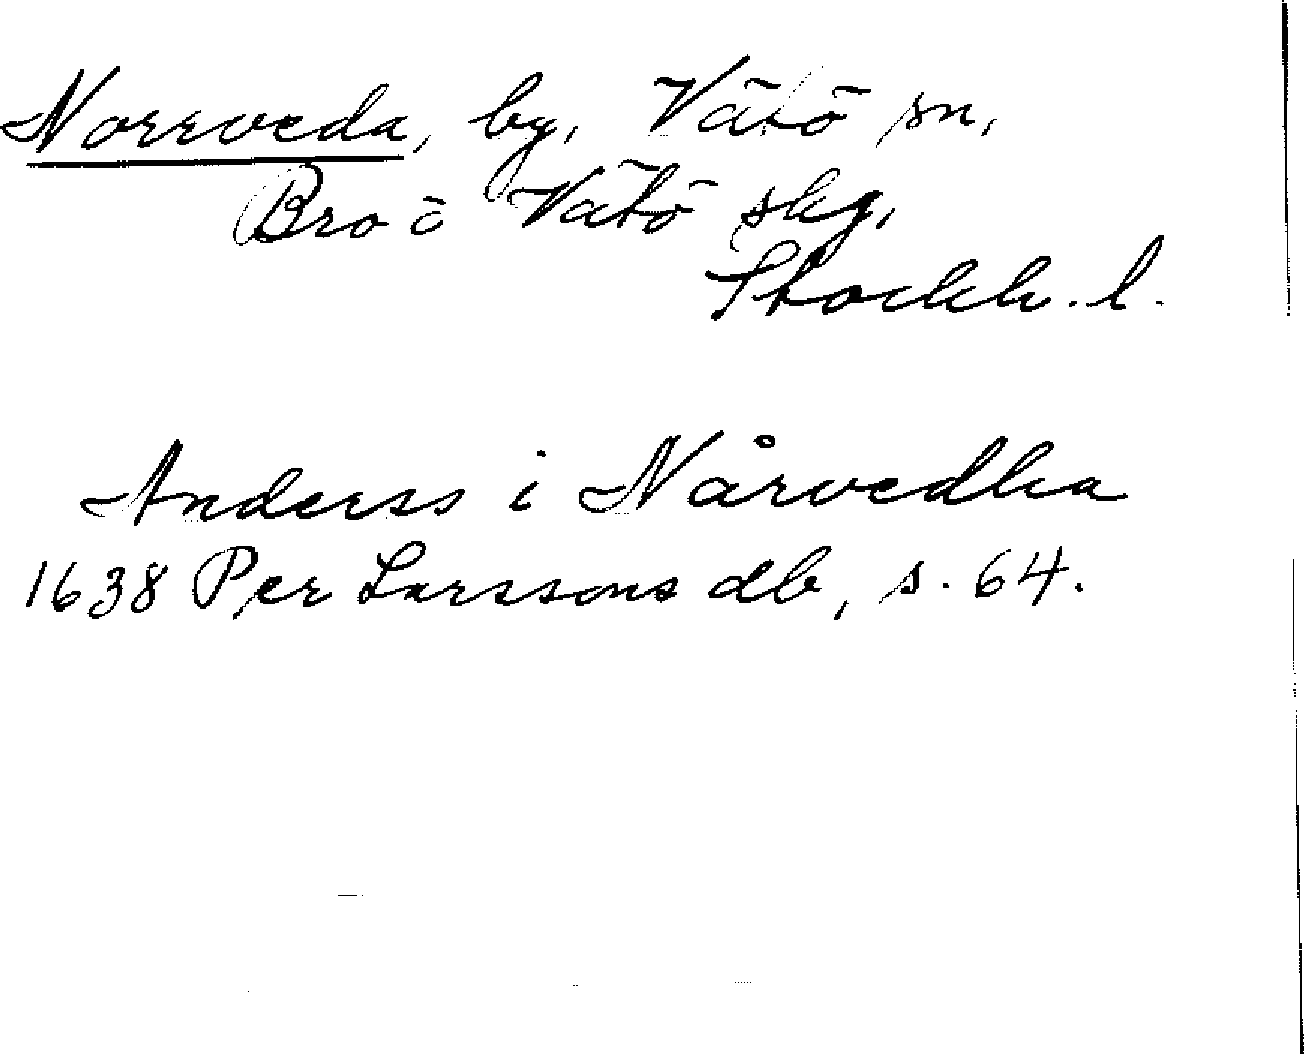 Norrveda, by, Vätö sn,
Bro o Vätö skg,
Stockh. l.
Anderss i Nårvedha
1638 Per Larssons db, s. 64.